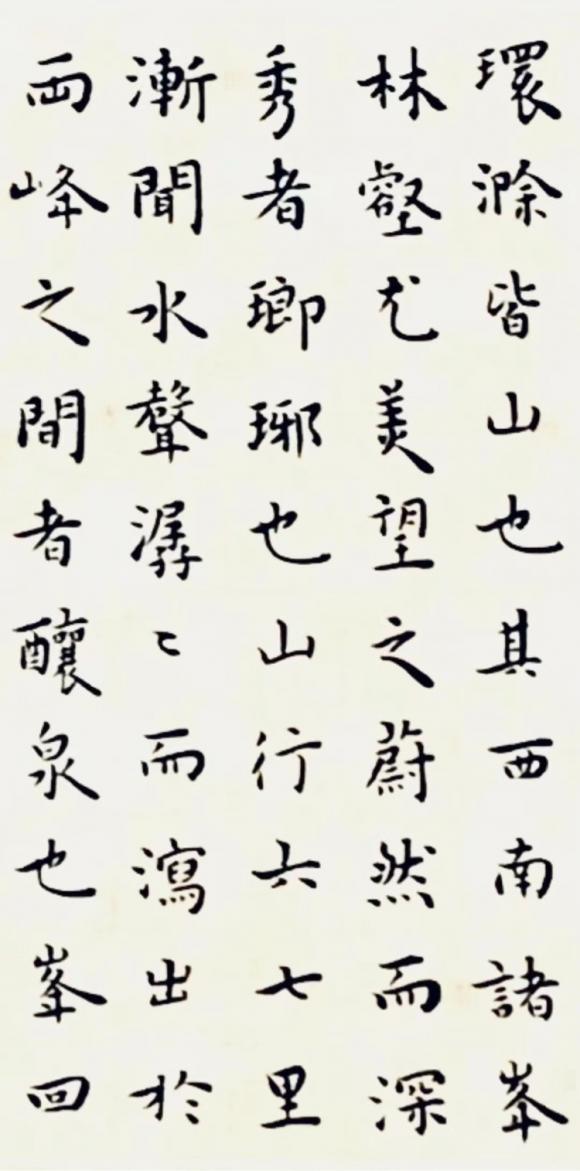 環滁皆山也其西南諸峯
林壑尤美望之蔚然而深
秀者瑯琊也山行六七里
漸聞水聲潺〻而瀉出於
兩峰之間者釀泉也峯回